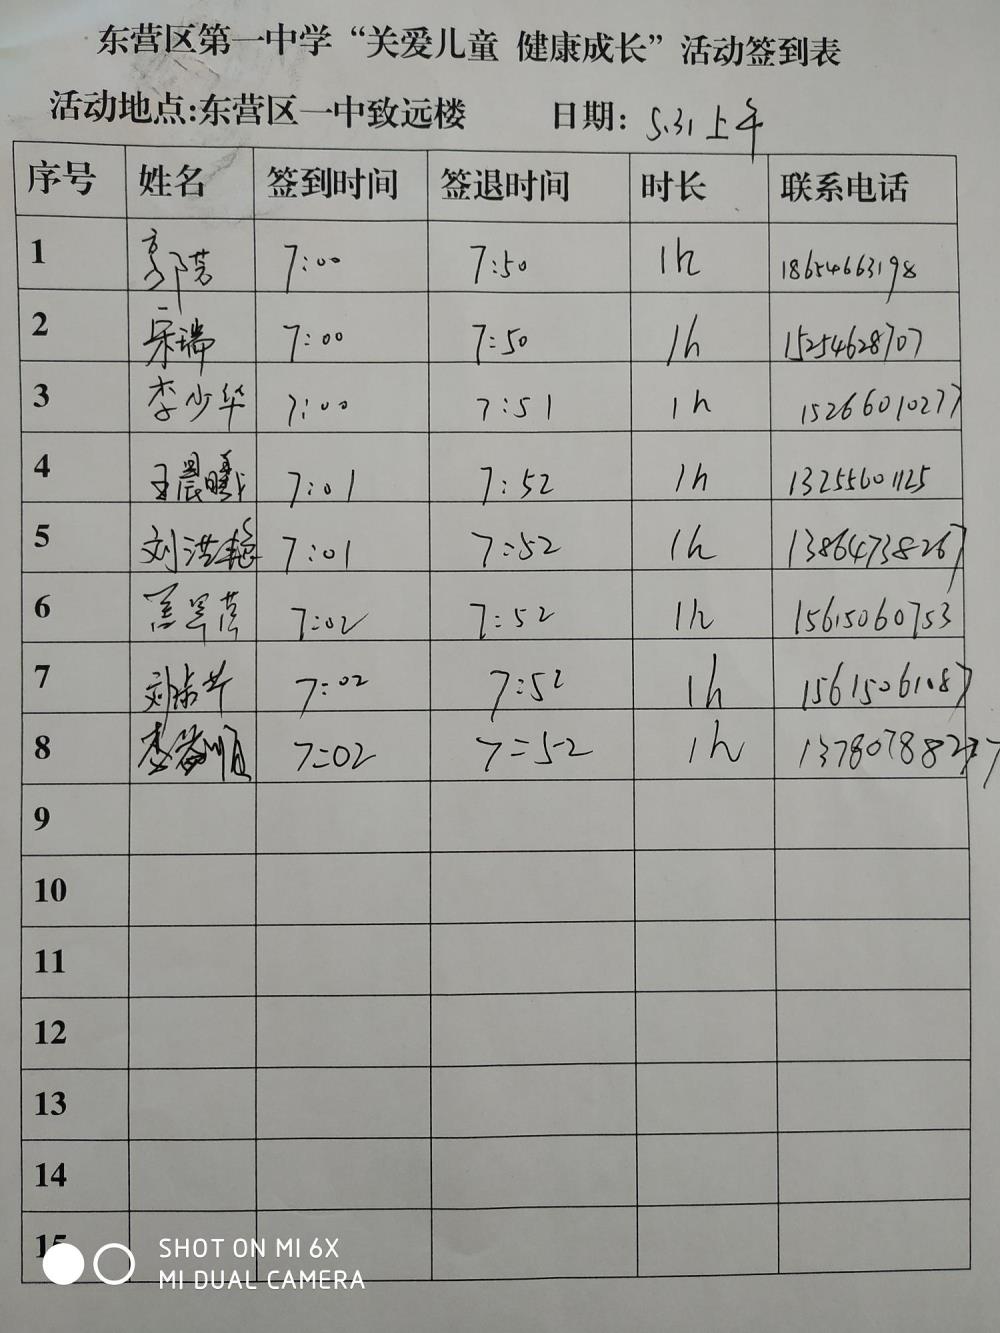 东营区第一中学“关爱儿童 健康成长”活动签到表
活动地点:东营区一中致远楼 日期: 5.31上午
序号 姓名 签到时间 签退时间 时长 联系电话
1 郭芳 7:00 7:50 1h 18654663198
2 宋瑞 7:00 7:50 1h 15254628707
3 李少华 7:00 7:51 1h 15266010277
4 王晨曦 7:01 7:52 1h 13255601125
5 刘洪艳 7:01 7:52 1h 13864738267
6 7:02 7:52 1h 15615060753
7 7:02 7:52 1h 15615061087
8 7:02 7:52 1h
9
10
11
12
13
14
15
SHOT ON MI 6X
MI DUAL CAMERA